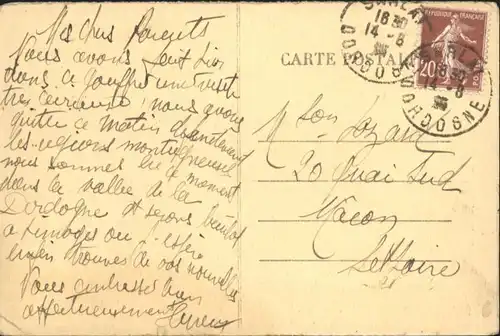 Mes chers Parents
Nous avons fait hier
dans ce gouffre une visite
très curieuse, nous avons
quitté ce matin
les régions montagneuses
nous sommes en ce moment
dans la vallée de la
Dordogne et serons bientôt
à Limoges où j'espère
enfin trouver de vos nouvelles
Vous embrasse bien
affectueusement
CARTE POSTALE
RÉPUBLIQUE FRANÇAISE
20
SARLAT
18 30
14 - 8
DORDOGNE
SARLAT
18 30
14 - 8
DORDOGNE
20 Quai Sud
Macon
S et Loire